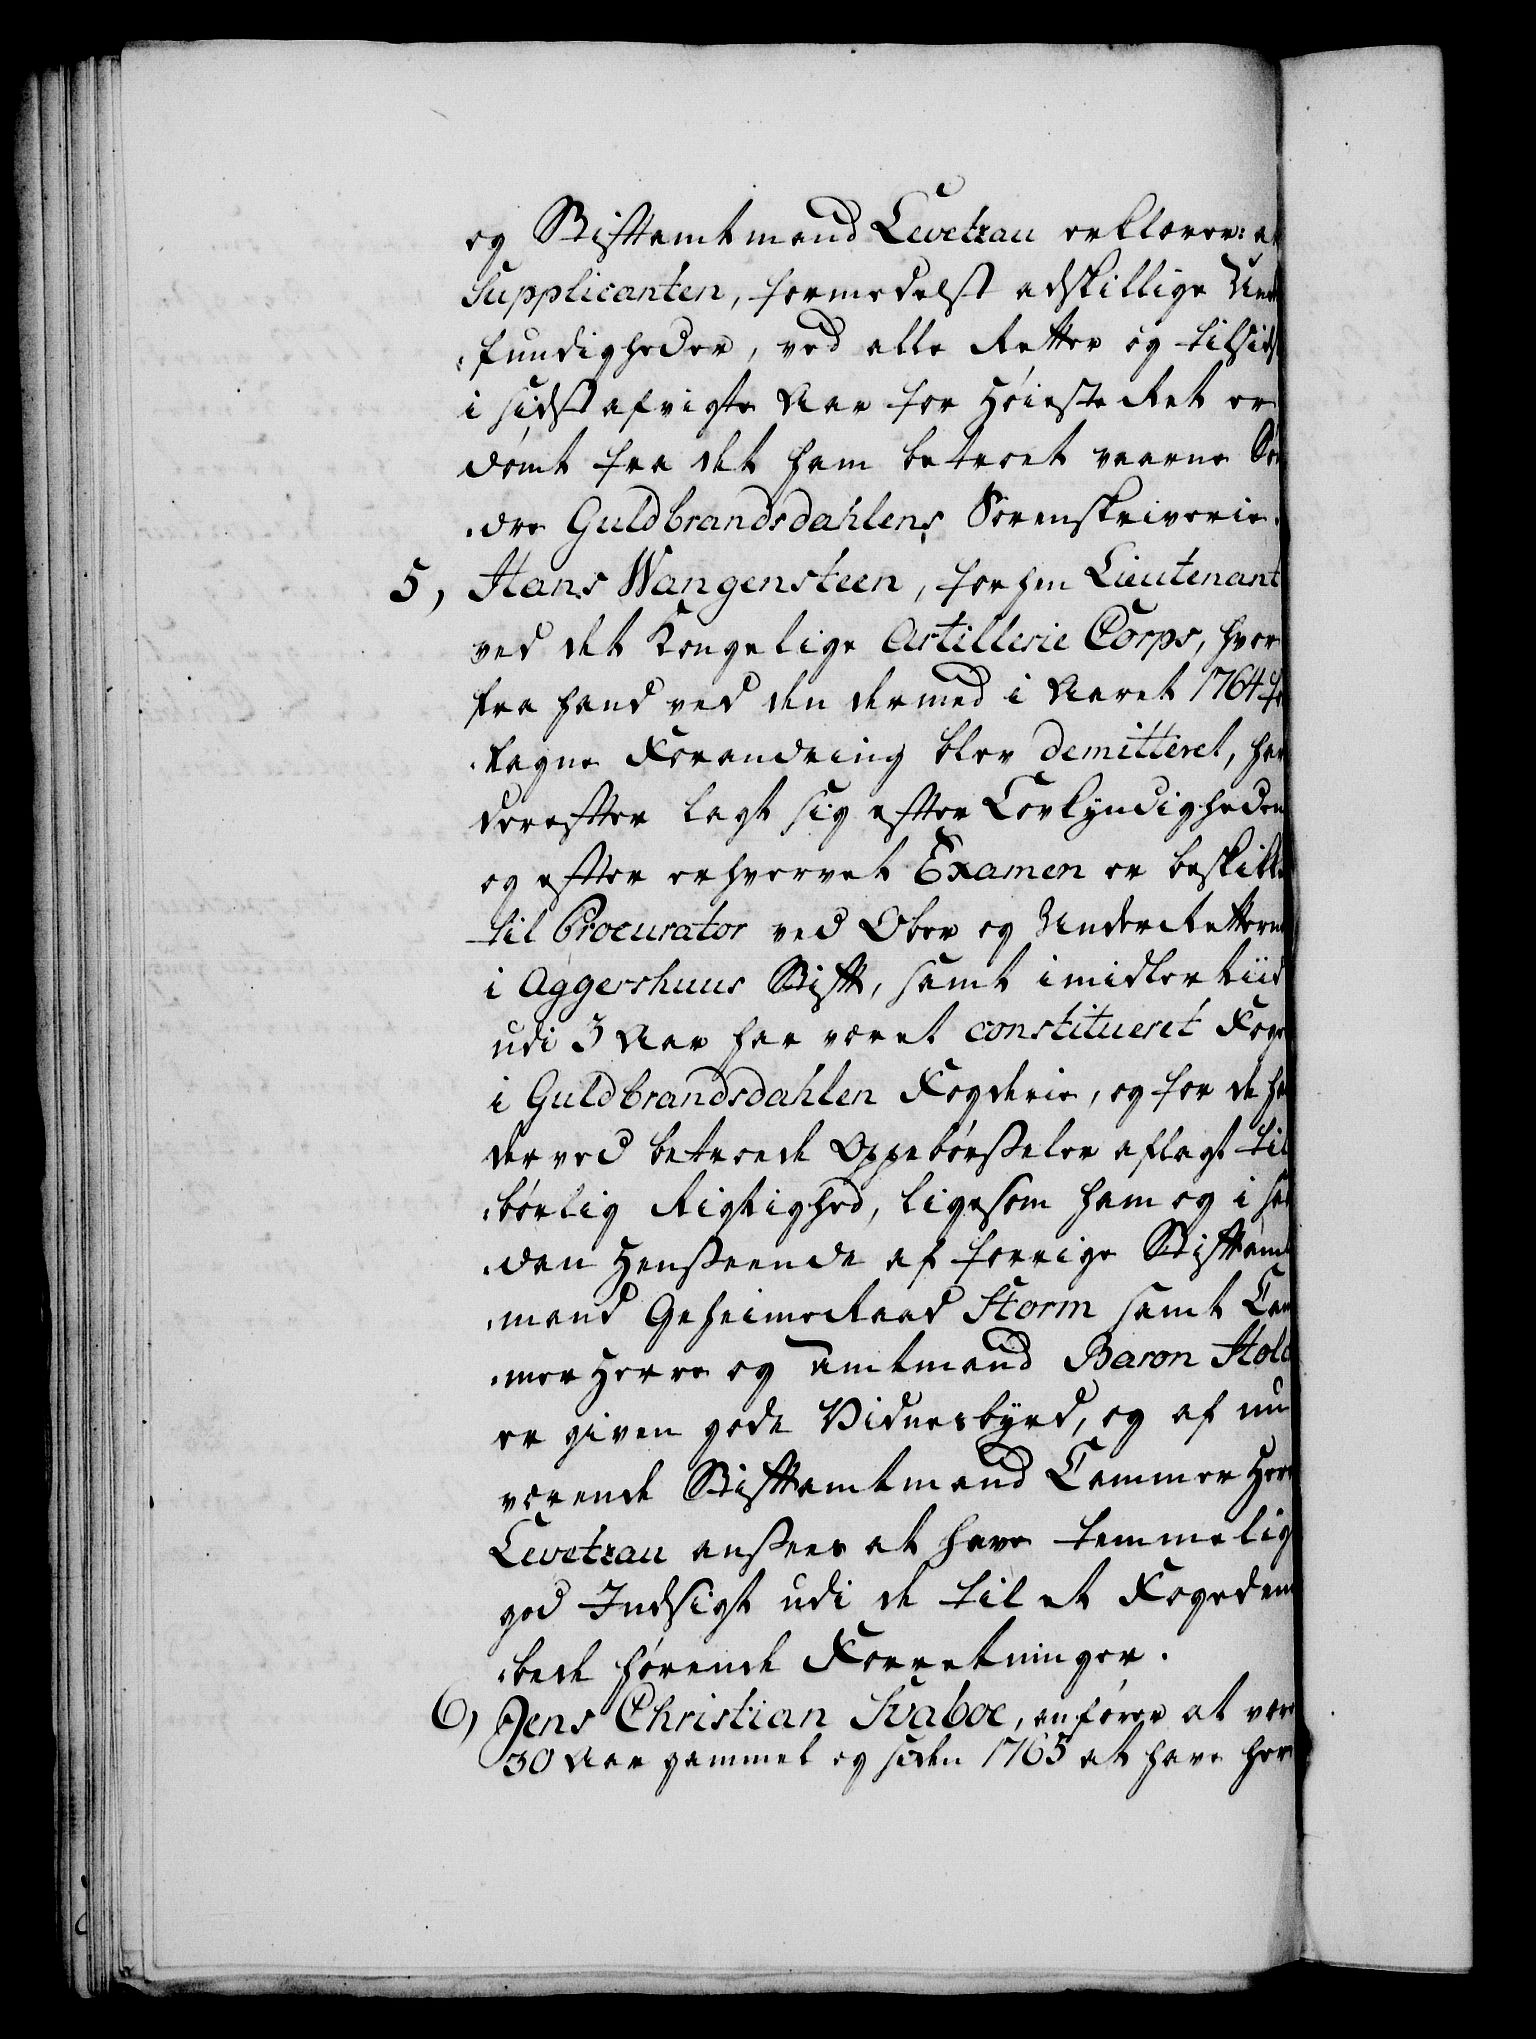 og Stiftamtmand Levetzau erklærer: at
Supplicanten, formedelst adskillige Uret-
findigheder, ved alle Retter og tilsidst
i sidstafvigte Aar for Høieste Ret er
dømt fra det ham betroet værne Søn-
dre Guldbrandsdahlens Sorenskriverie.
5, Hans Wangensteen, forhen Lieutenant
ved det Kongelige Artillerie Corps, hvor
fra hand ved den dermed i Aaret 1764 fore
tagne Forandring blev demitteret, har
derefter lagt sig efter Lovkyndigheden
og efter erhvervet Examen er beskikket
til Procurator ved Over og UnderRetterne
i Aggershuus Stift, samt imidlertiid
udi 3 Aar har været constitueret Foged
i Guldbrandsdahlen Fogderie, og for de ham
derved betroede Oppebørsseler aflagt til-
børlig Rigtighed, ligesom ham og i saa-
dan Henseende af forrige Stiftamt-
mand GeheimeRaad Storm samt Cam-
merHerre og Amtmand Baron Holck
er given gode Vidnesbyrd, og af nu
værende Stiftamtmand CammerHerre
Levetzau ansees at have temmelig
god Indsigt udi de til et Fogedem-
bede hørende Forretninger.
6, Jens Christian Svaboe, anfører at være
30 Aar gammel og siden 1765 at have